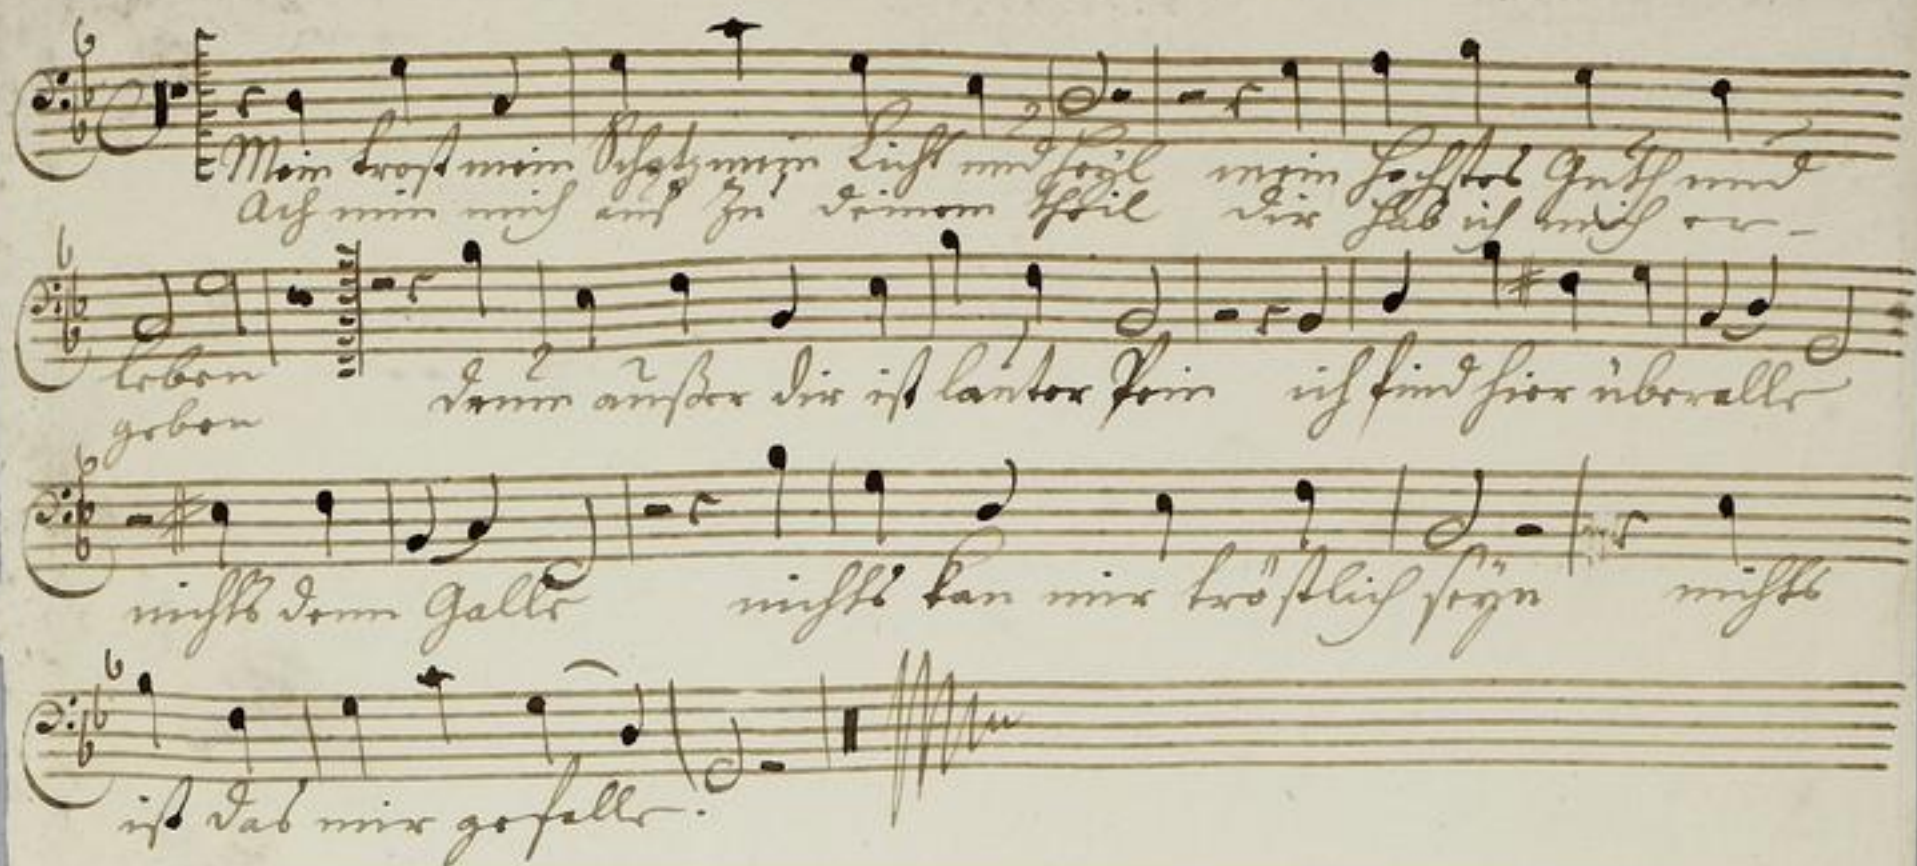 Mein trost mein Schatz mein Licht und heyl mein höchstes Guth und
Ach nim mich auf zu deinem theil dir hab ich mich er-
leben denn außer dir ist lauter Pein ich find hier überalle
geben
nichts denn Galle nichts kan mir tröstlich seyn nichts
ist das mir gefalle.